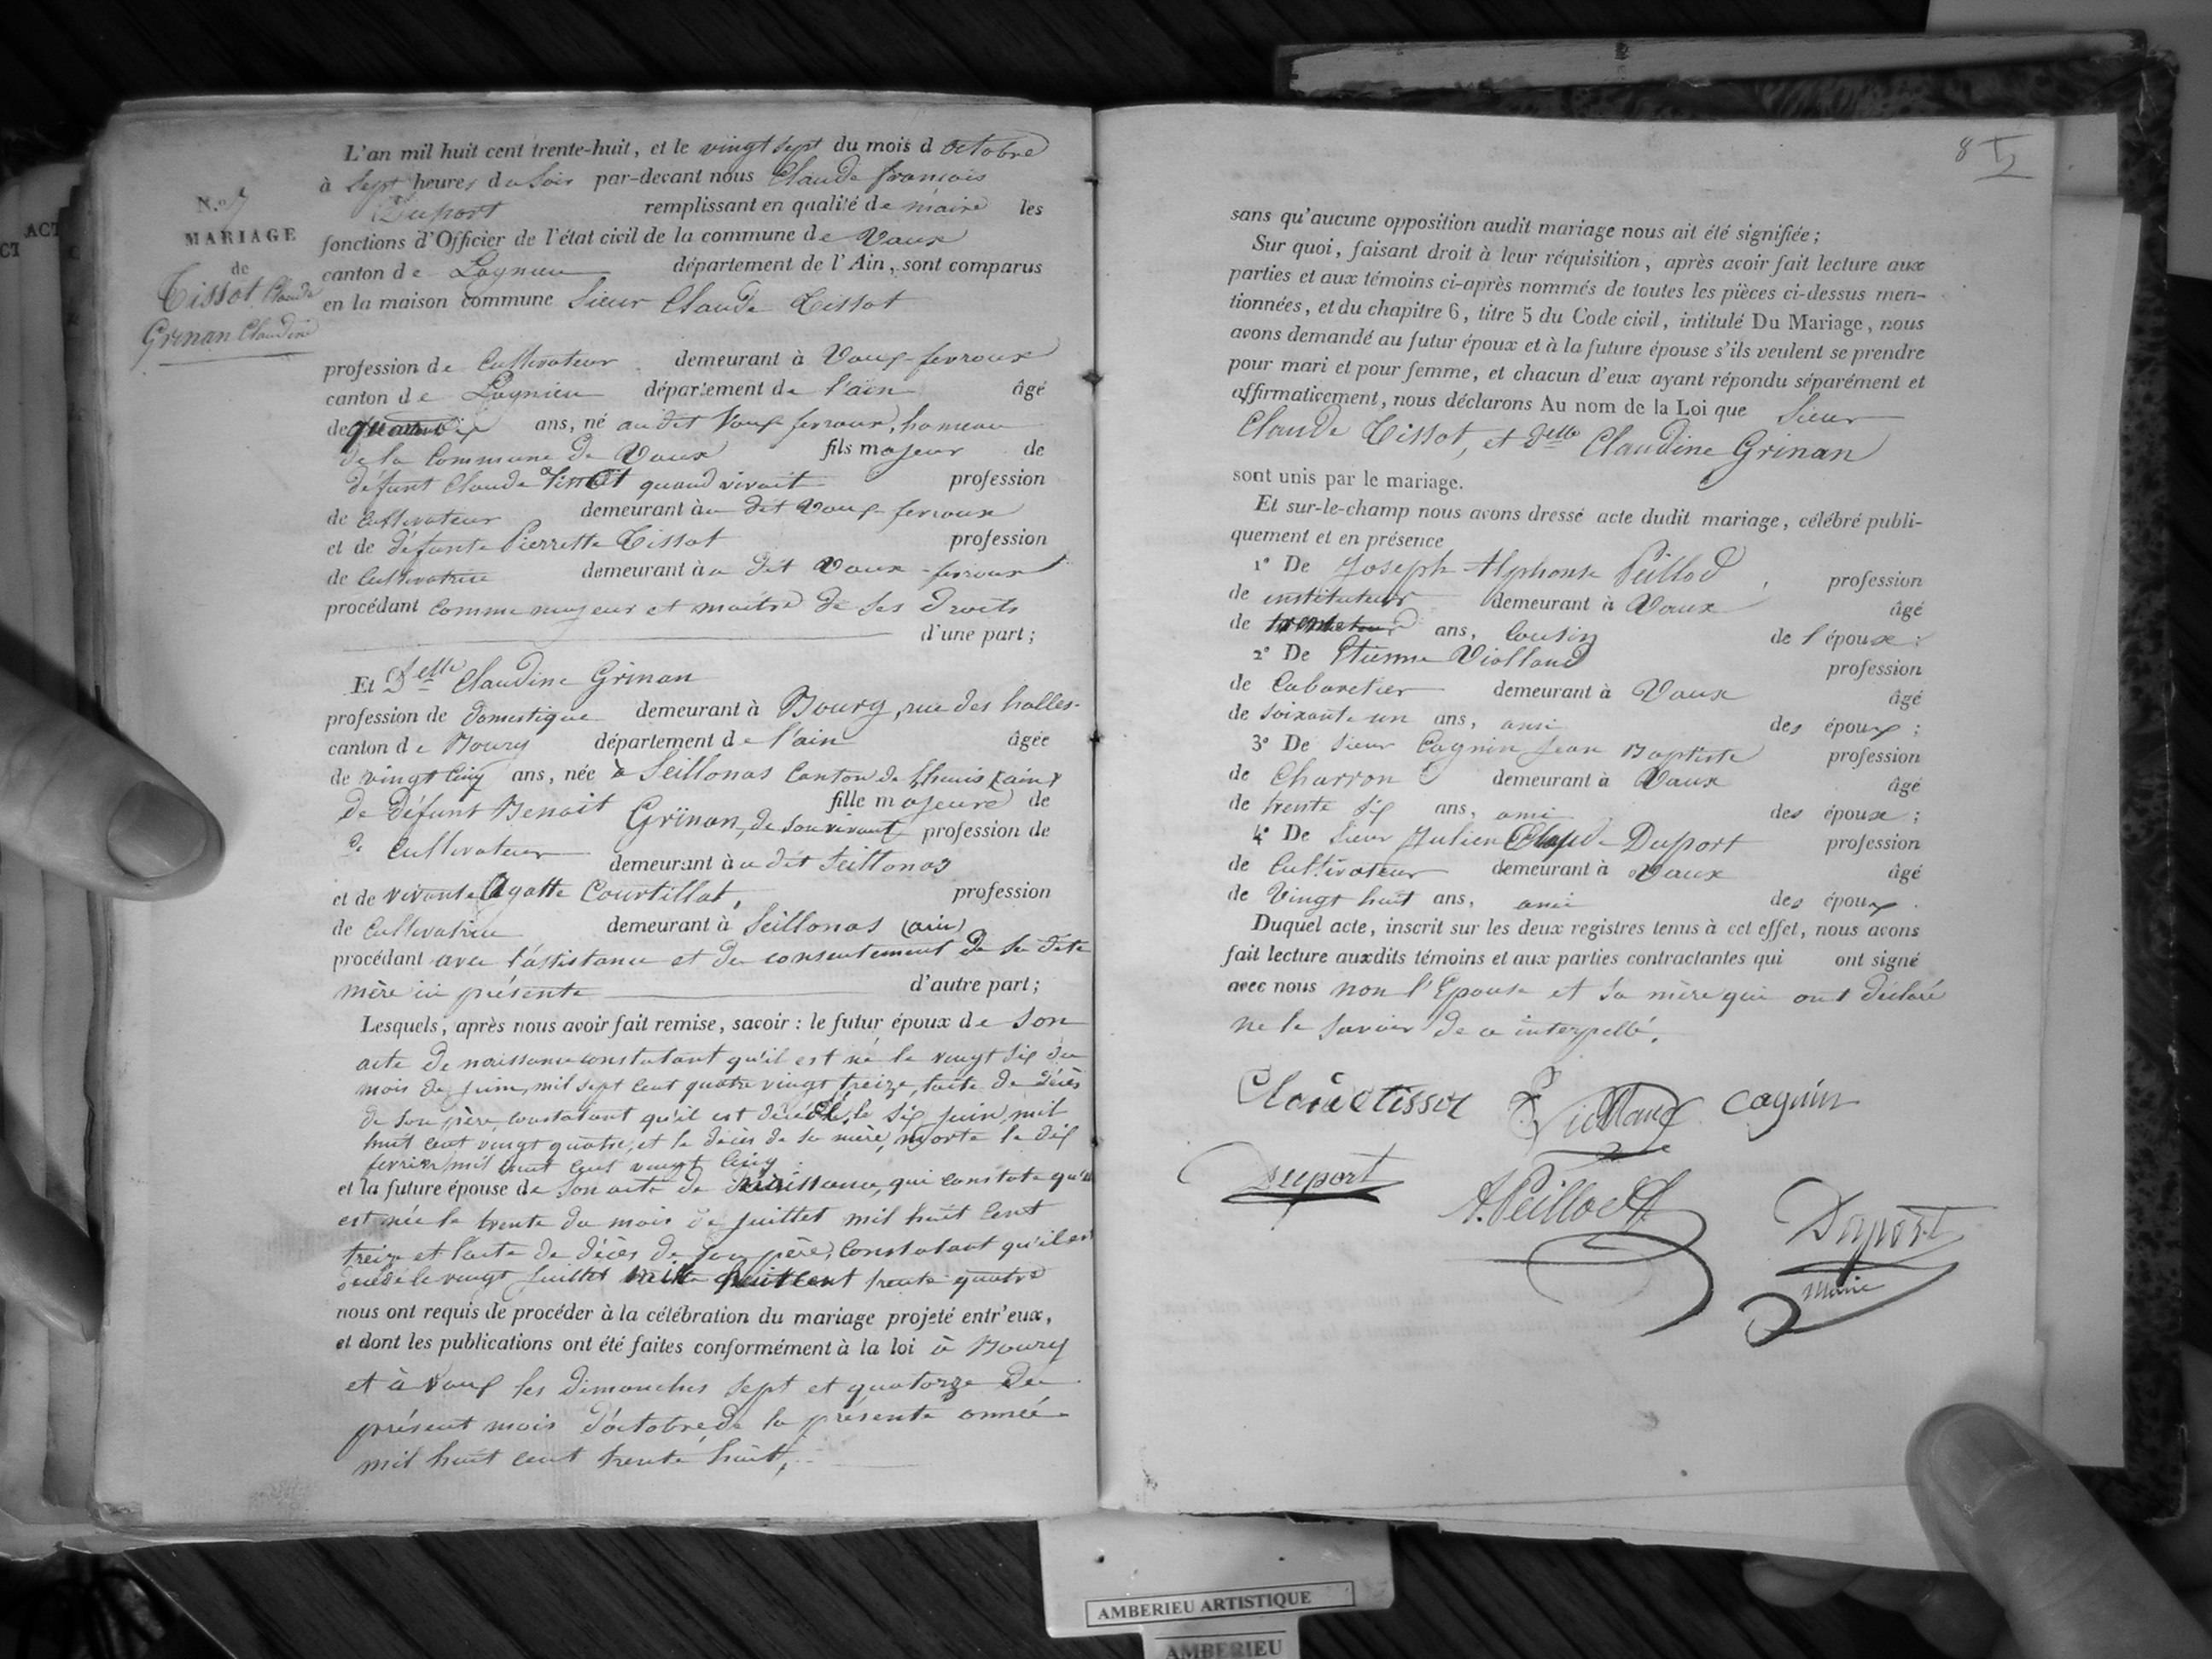 ACT
CT
N.º 7
MARIAGE
de
Tissot Claude
Grinan Claudine
L'an mil huit cent trente-huit, et le vingt sept du mois d octobre
à sept heures du soir par-devant nous Claude françois
Duport remplissant en qualité de maire les
fonctions d'Officier de l'état civil de la commune de Vaux
canton de Lagnieu département de l'Ain, sont comparus
en la maison commune Sieur Claude Tissot
profession de Cultivateur demeurant à Vaux fevroux
canton de Lagnieu département de l'ain âgé
de ans, né audit Vaux fevroux, hameau
de la Commune de Vaux fils majeur de
défunt Claude Tissot quand vivait profession
de Cultivateur demeurant au dit Vaux fevroux
et de défunte Pierrette Tissot profession
de Cultivatrice demeurant au dit Vaux-fevroux
procédant comme majeur et maître de ses droits
d'une part;
Et Delle Claudine Grinan
profession de domestique demeurant à Bourg, rue des halles
canton de Bourg département de l'ain âgée
de vingt cinq ans, née à Seillonas Canton de Lhuis (ain)
De Défunt Benoit Grinan, de son vivant fille majeure de
profession de
de Cultivateur demeurant au dit Seillonas
et de vivante Agatte Courtillat, profession
de Cultivatrice demeurant à Seillonas (ain)
procédant avec l'assistance et du consentement de sa dite
mère ici présente d'autre part;
Lesquels, après nous avoir fait remise, savoir: le futur époux de son
acte de naissance constatant qu'il est né le vingt six du
mois de juin, mil sept cent quatre vingt treize, l'acte de décès
de son père, constatant qu'il est décédé, le six juin, mil
huit cent vingt quatre, et le décès de sa mère, morte le dix
fevrier mil huit cent vingt cinq
et la future épouse de son acte de naissance, qui constate qu'elle
est née le trente du mois de juillet mil huit cent
treize et l'acte de décès de son père, constatant qu'il est
décédé le vingt juillet mille huit cent trente quatre
nous ont requis de procéder à la célébration du mariage projeté entr'eux,
et dont les publications ont été faites conformément à la loi à Bourg
et à Vaux les dimanches sept et quatorze du
présent mois d'octobre de la présente année
mil huit cent trente huit,
8
sans qu'aucune opposition audit mariage nous ait été signifiée;
Sur quoi, faisant droit à leur réquisition, après avoir fait lecture aux
parties et aux témoins ci-après nommés de toutes les pièces ci-dessus men-
tionnées, et du chapitre 6, titre 5 du Code civil, intitulé Du Mariage, nous
avons demandé au futur époux et à la future épouse s'ils veulent se prendre
pour mari et pour femme, et chacun d'eux ayant répondu séparément et
affirmativement, nous déclarons Au nom de la Loi que Sieur
Claude Tissot, et delle Claudine Grinan
sont unis par le mariage.
Et sur-le-champ nous avons dressé acte dudit mariage, célébré publi-
quement et en présence
1º De Joseph Alphonse Peillod, profession
de instituteur demeurant à Vaux âgé
de ans, Cousin de l'époux:
2º De Etienne Violland profession
de Cabaretier demeurant à Vaux âgé
de soixante un ans, ami des époux;
3º De sieur Cagnin Jean Baptiste profession
de Charron demeurant à Vaux âgé
de trente six ans, ami des époux;
4º De sieur Julien Claude Duport profession
de Cultivateur demeurant à Vaux âgé
de Vingt huit ans, ami des époux.
Duquel acte, inscrit sur les deux registres tenus à cet effet, nous avons
fait lecture auxdits témoins et aux parties contractantes qui ont signé
avec nous non l'Epouse et sa mère qui ont déclaré
ne le savoir de ce interpellé.
Claude tissot Violland cagnin
Duport A. Peillod Duport
Maire
AMBERIEU ARTISTIQUE
AMBERIEU